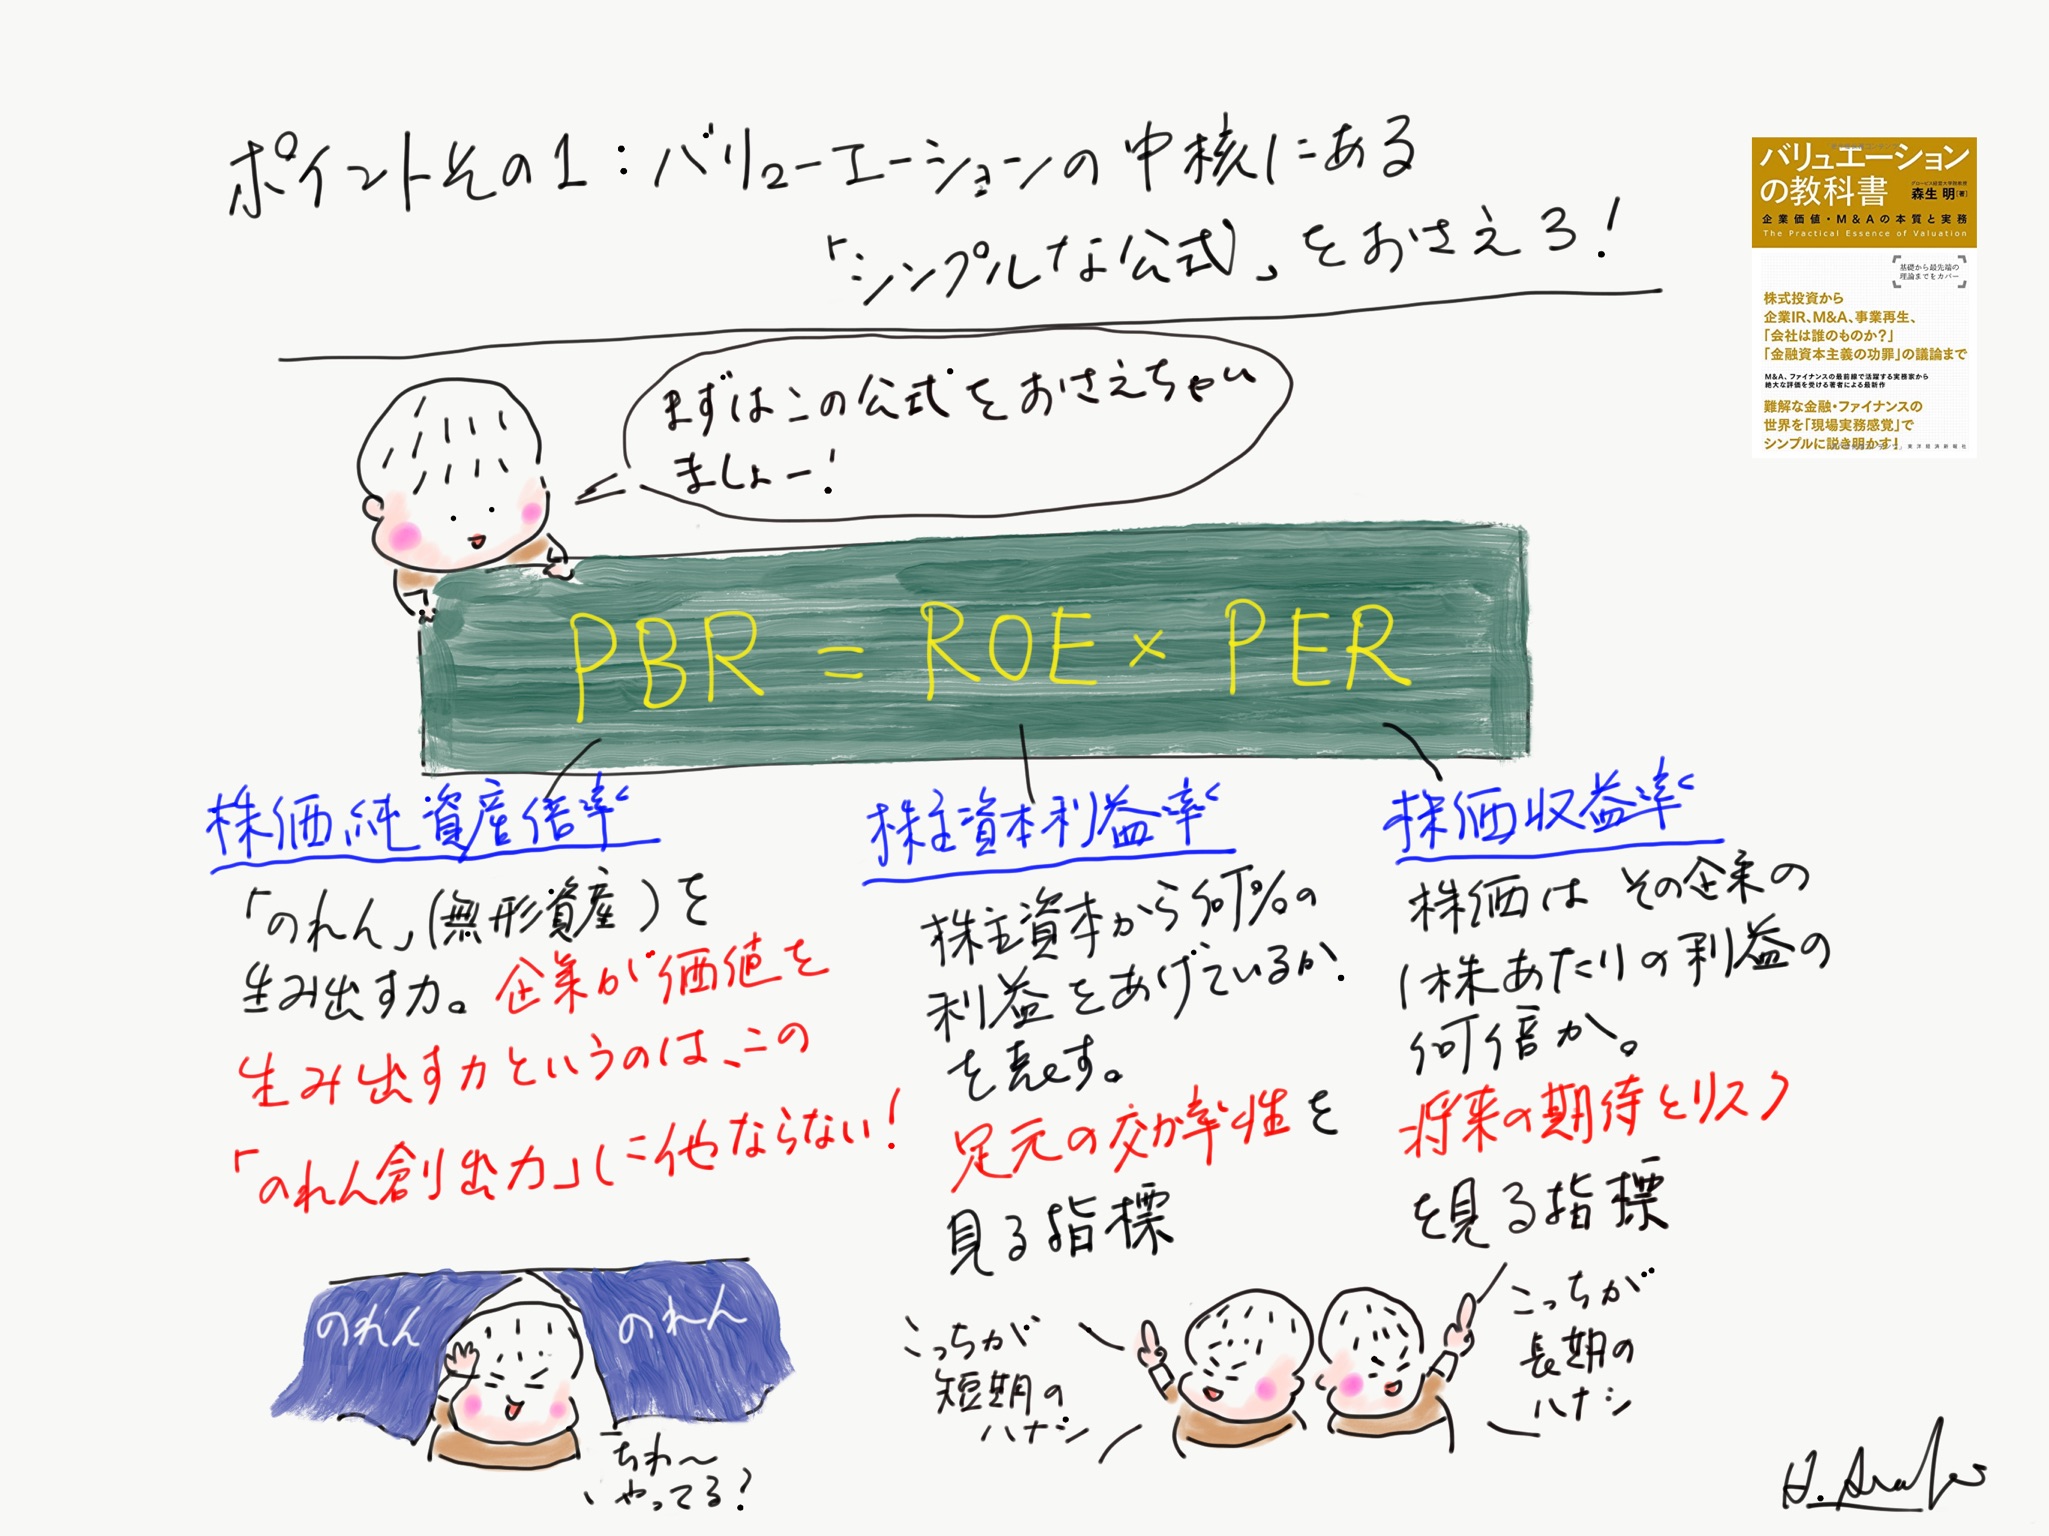 ポイントその1:バリューエーションの中核にある
「シンプルな公式」をおさえろ!
バリュエーション
の教科書
グロービス経営大学院教授
森生 明[著]
企業価値・M&Aの本質と実務
The Practical Essence of Valuation
基礎から最先端の
理論までをカバー
株式投資から
企業IR、M&A、事業再生、
「会社は誰のものか?」
「金融資本主義の功罪」の議論まで
M&A、ファイナンスの最前線で活躍する実務家から
絶大な評価を受ける著者による最新作
難解な金融・ファイナンスの
世界を「現場実務感覚」で
シンプルに説き明かす!
東洋経済新報社
まずはこの公式をおさえちゃい
ましょー!
PBR = ROE × PER
株価純資産倍率
「のれん」(無形資産)を
生み出す力。企業が価値を
生み出す力というのは、この
「のれん創出力」に他ならない!
のれん
のれん
ちわ〜
やってる?
株主資本利益率
株主資本から何%の
利益をあげているか
を表す。
足元の効率性を
見る指標
こっちが
短期の
ハナシ
株価収益率
株価はその企業の
1株あたりの利益の
何倍か。
将来の期待とリスク
を見る指標
こっちが
長期の
ハナシ